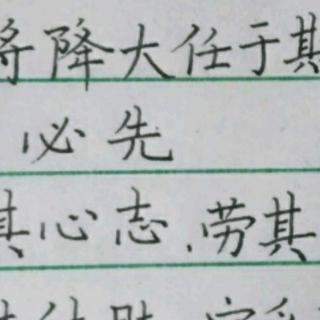 将降大任于斯
必先
其心志,劳其